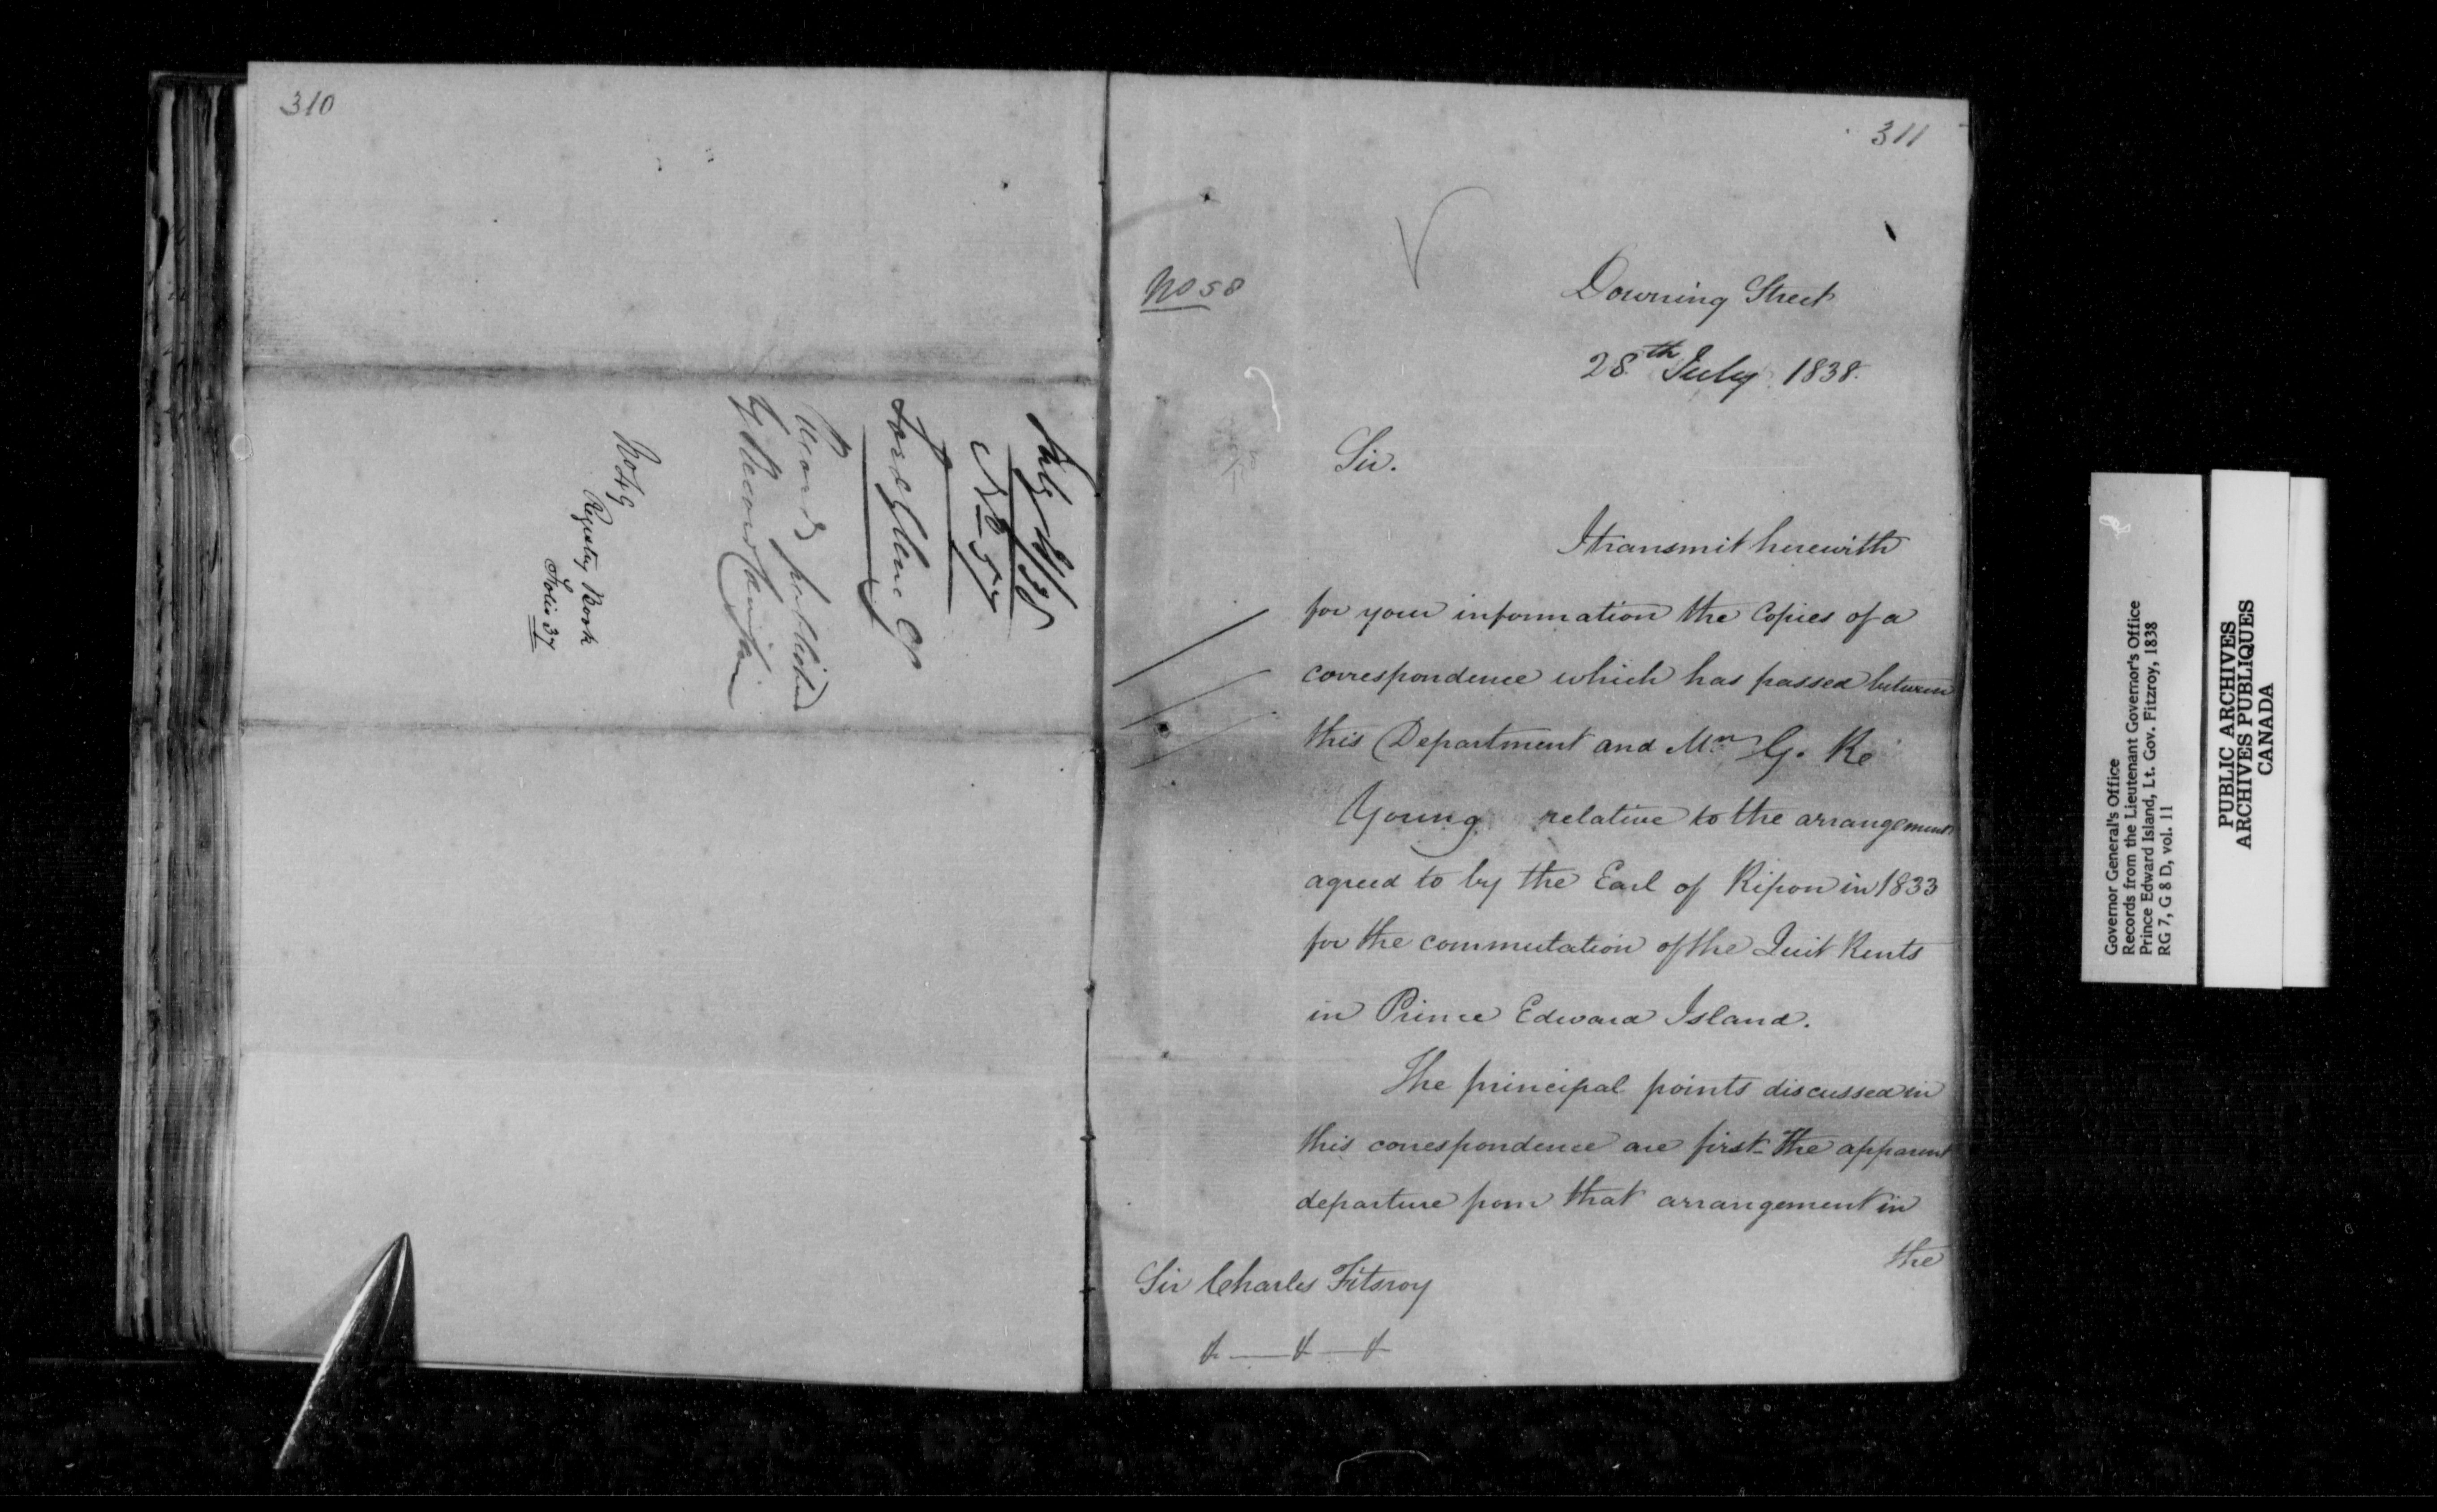 310
July 1838
No 57
Lord Glenelg
No 49
Registry Book
Folio 37
311
No 58
Downing Street
28th July 1838.
Sir.
I transmit herewith
for your information the Copies of a
correspondence which has passed between
this Department and Mr. G. R.
Young relative to the arrangement
agreed to by the Earl of Ripon in 1833
for the commutation of the Quit Rents
in Prince Edward Island.
The principal points discussed in
this correspondence are first The apparent
departure from that arrangement in
the
Sir Charles Fitzroy
&—&—&
Governor General's Office
Records from the Lieutenant Governor's Office
Prince Edward Island, Lt. Gov. Fitzroy, 1838
RG 7, G 8 D, vol. 11
PUBLIC ARCHIVES
ARCHIVES PUBLIQUES
CANADA